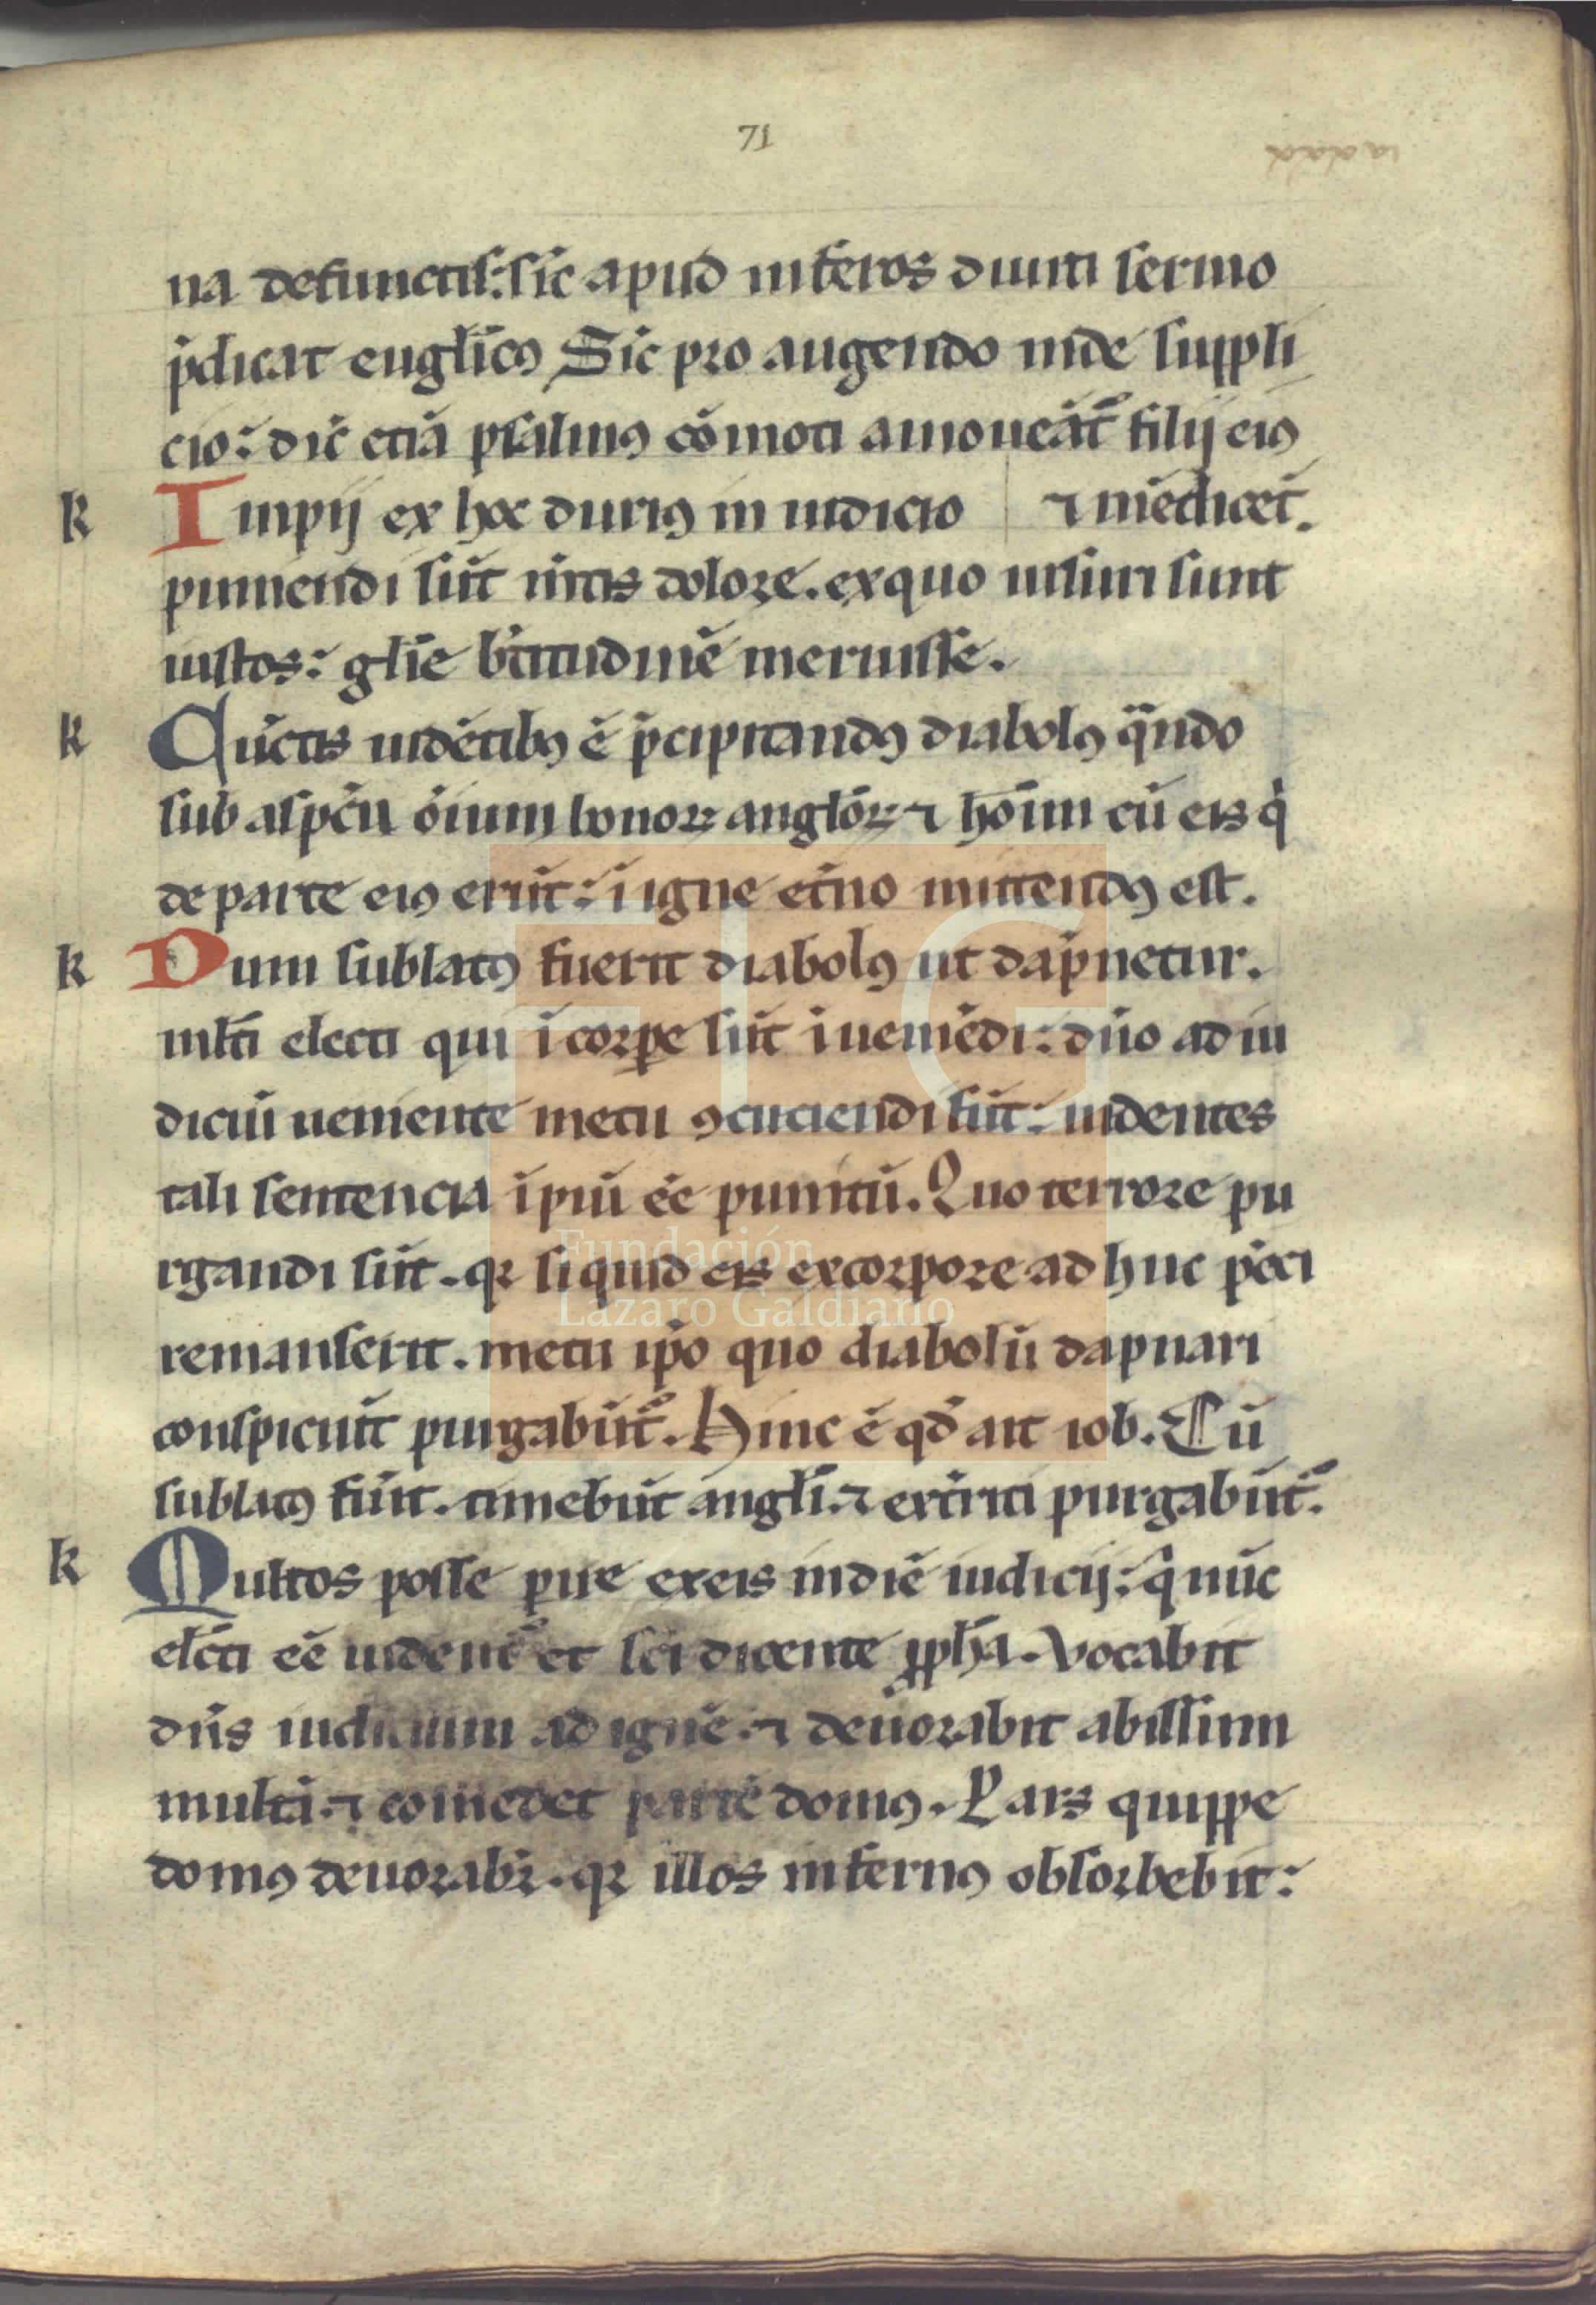 71
na defunctis: sic̄ apud inferos diuiti sermo
p̄dicat eugl̄icꝰ Sic̄ pro augendo inde suppli
cio: dic̄ etiā psalmꝰ cōmoti amoueāt᷑ filij eiꝰ
k Impij ex hoc duriꝰ in iudicio ⁊ mēdicēt.
puniendi sūt m̄tis dolore. ex quo uisuri sunt
iustos: gl̄ie b̄titudinē meruisse.
k Cūctis uidētibꝰ ē p̄cipitandꝰ diabolꝰ q̄ndo
sub aspc̄u ōium bonoꝝ angl̄oꝝ ⁊ hōim cū eis q̇
de parte eiꝰ erūt: ī igne et̄no mittendꝰ est.
k Dum sublatꝰ fuerit diabolꝰ ut dap̄netur.
ml̄ti electi qui ī corꝑe sūt īueniēdi: dn̄o ad iu
diciū ueniente metu ꝯcuciendi sūt: uidentes
tali sentencia īpiū ēe punitū. Quo terrore pu
rgandi sūt. qꝛ si quid eis ex corpore ad huc p̄cci
remanserit. metu ip̄o quo diabolū dapnari
conspiciūt purgabūt᷑. Hinc ē qd̄ ait iob. Cū
sublatꝰ fūit. timebūt angl̄i. ⁊ ext̄riti purgabūt᷑.
k Multos posse ꝑire ex eis in diē iudicij: q̇ nūc
elc̄ti ēe uident᷑ et sc̄i dicente ꝓph̄a. Vocabit
dn̄s iudicium ad ignē. ⁊ deuorabit abissum
multā. ⁊ comedet partē domꝰ. Pars quippe
domꝰ deuorabr̄. qꝛ illos infernꝰ obsorbebit:
Fundación
Lázaro Galdiano